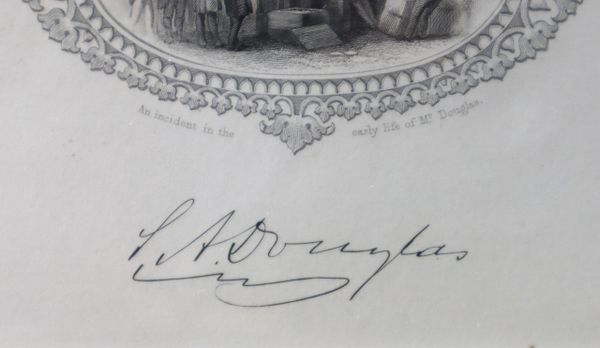 An incident in the early life of Mr. Douglas.
S. A. Douglas